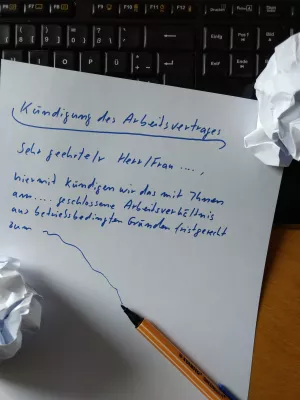 Kündigung des Arbeitsvertrages
Sehr geehrte/r Herr/Frau ....,
hiermit kündigen wir das mit Ihnen
am .... geschlossene Arbeitsverhältnis
aus betriebsbedingten Gründen fristgerecht
zum